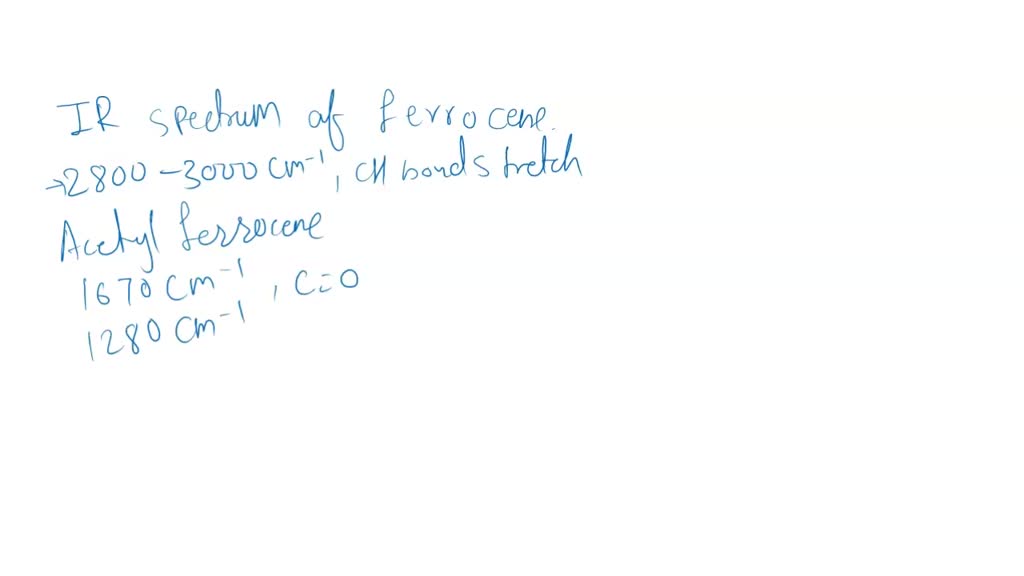 IR spectrum of ferrocene.
→2800-3000 cm⁻¹, CH bond stretch
Acetyl ferrocene
1670 cm⁻¹, C=O
1280 cm⁻¹